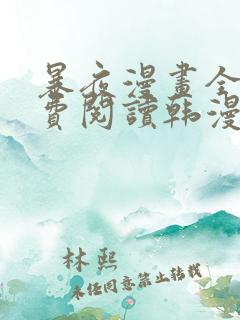 暴夜漫畫全
費閱讀韩漫
林熙
未经同意禁止转载